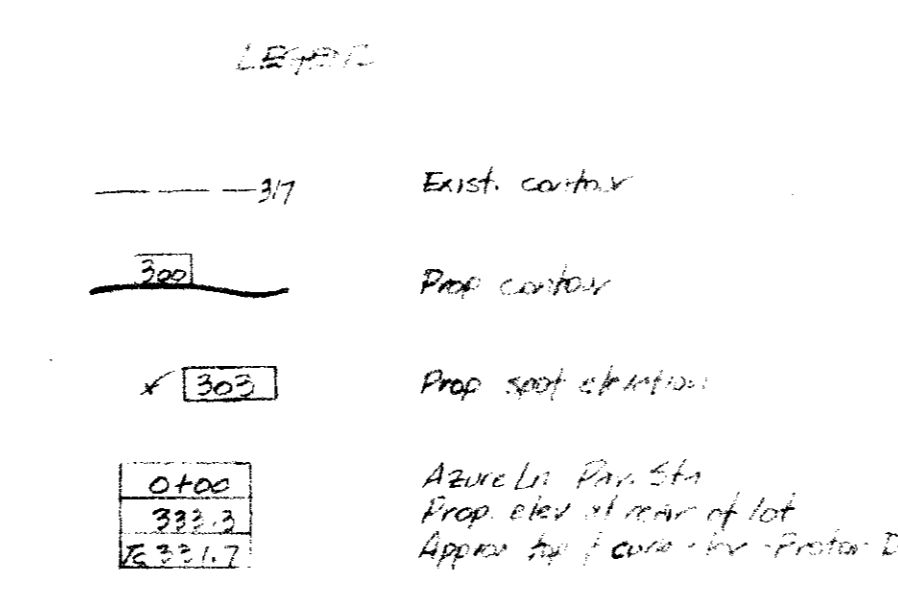 LEGEND
317 Exist. contour
300 Prop contour
303 Prop spot elevation
0+00 Azure Ln Pav. Sta
333.3 Prop. elev at rear of lot
TC 331.7 Approx top curb